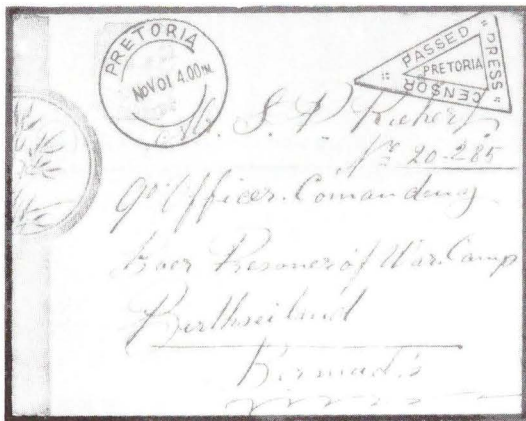 PRETORIA
NOV 01 4.00 PM
PASSED
PRESS
CENSOR
PRETORIA
S. P. Riekert
No 20-285
Officer. Comanding
Boer Presoner of War. Camp
Bermuda